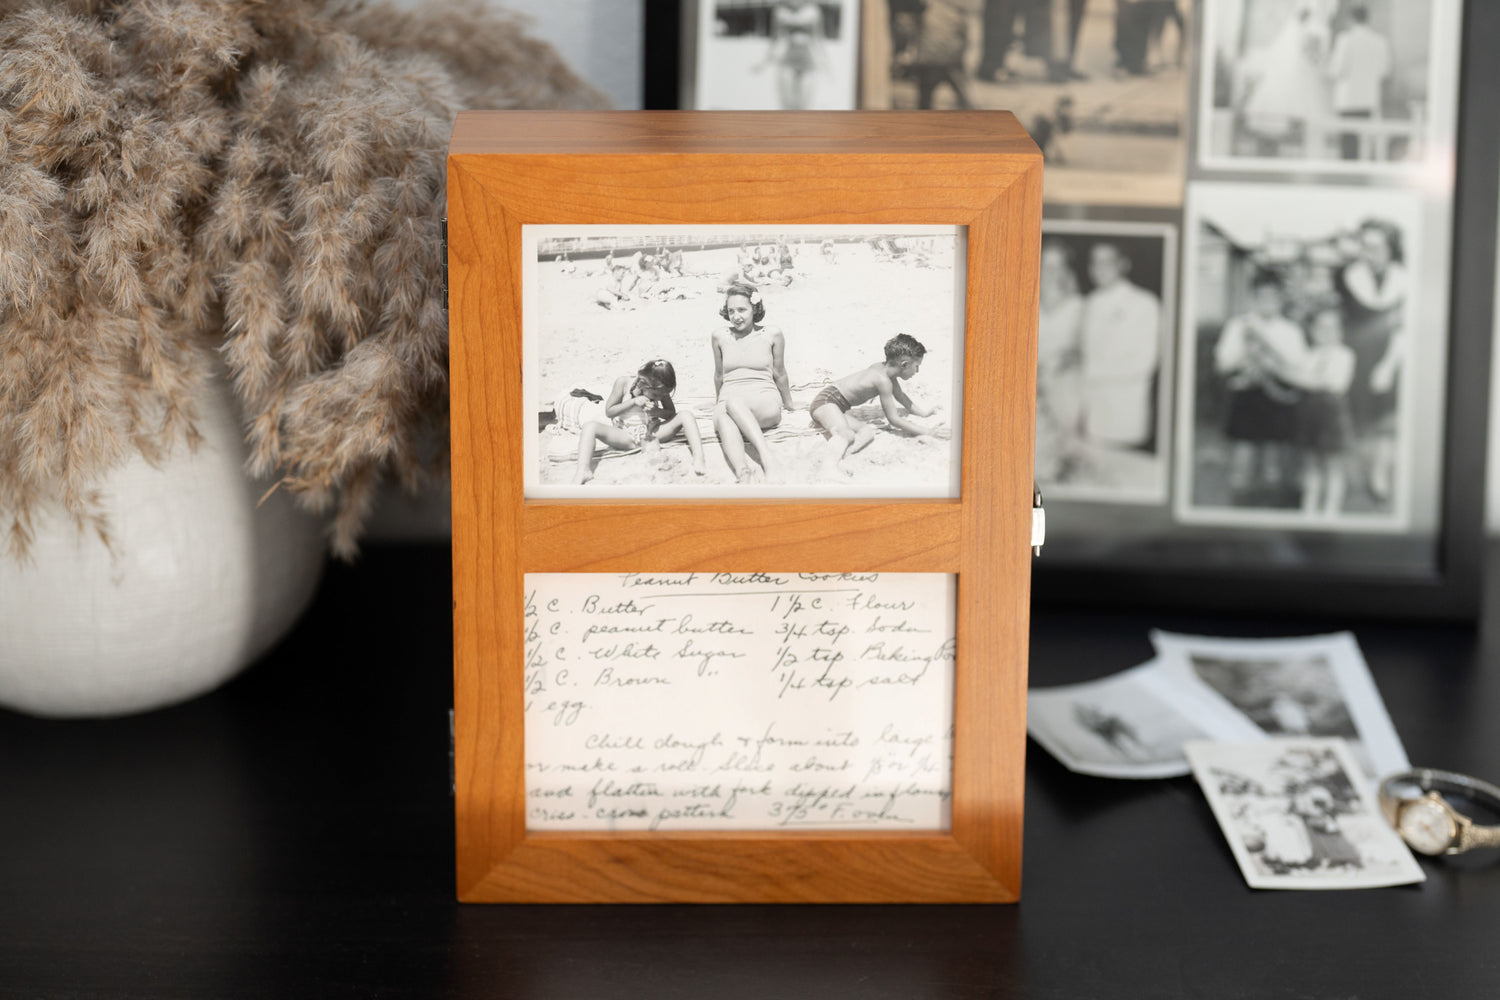 Peanut Butter Cookies
1/2 C. Butter 1 1/2 C. Flour
1/2 C. peanut butter 3/4 tsp. Soda
1/2 C. White Sugar 1/2 tsp Baking Po
1/2 C. Brown " 1/4 tsp salt
1 egg.
Chill dough & form into large b
or make a roll. Slice about 1/8 or 1/4
and flatten with fork dipped in flour
criss-cross pattern 375° F. oven